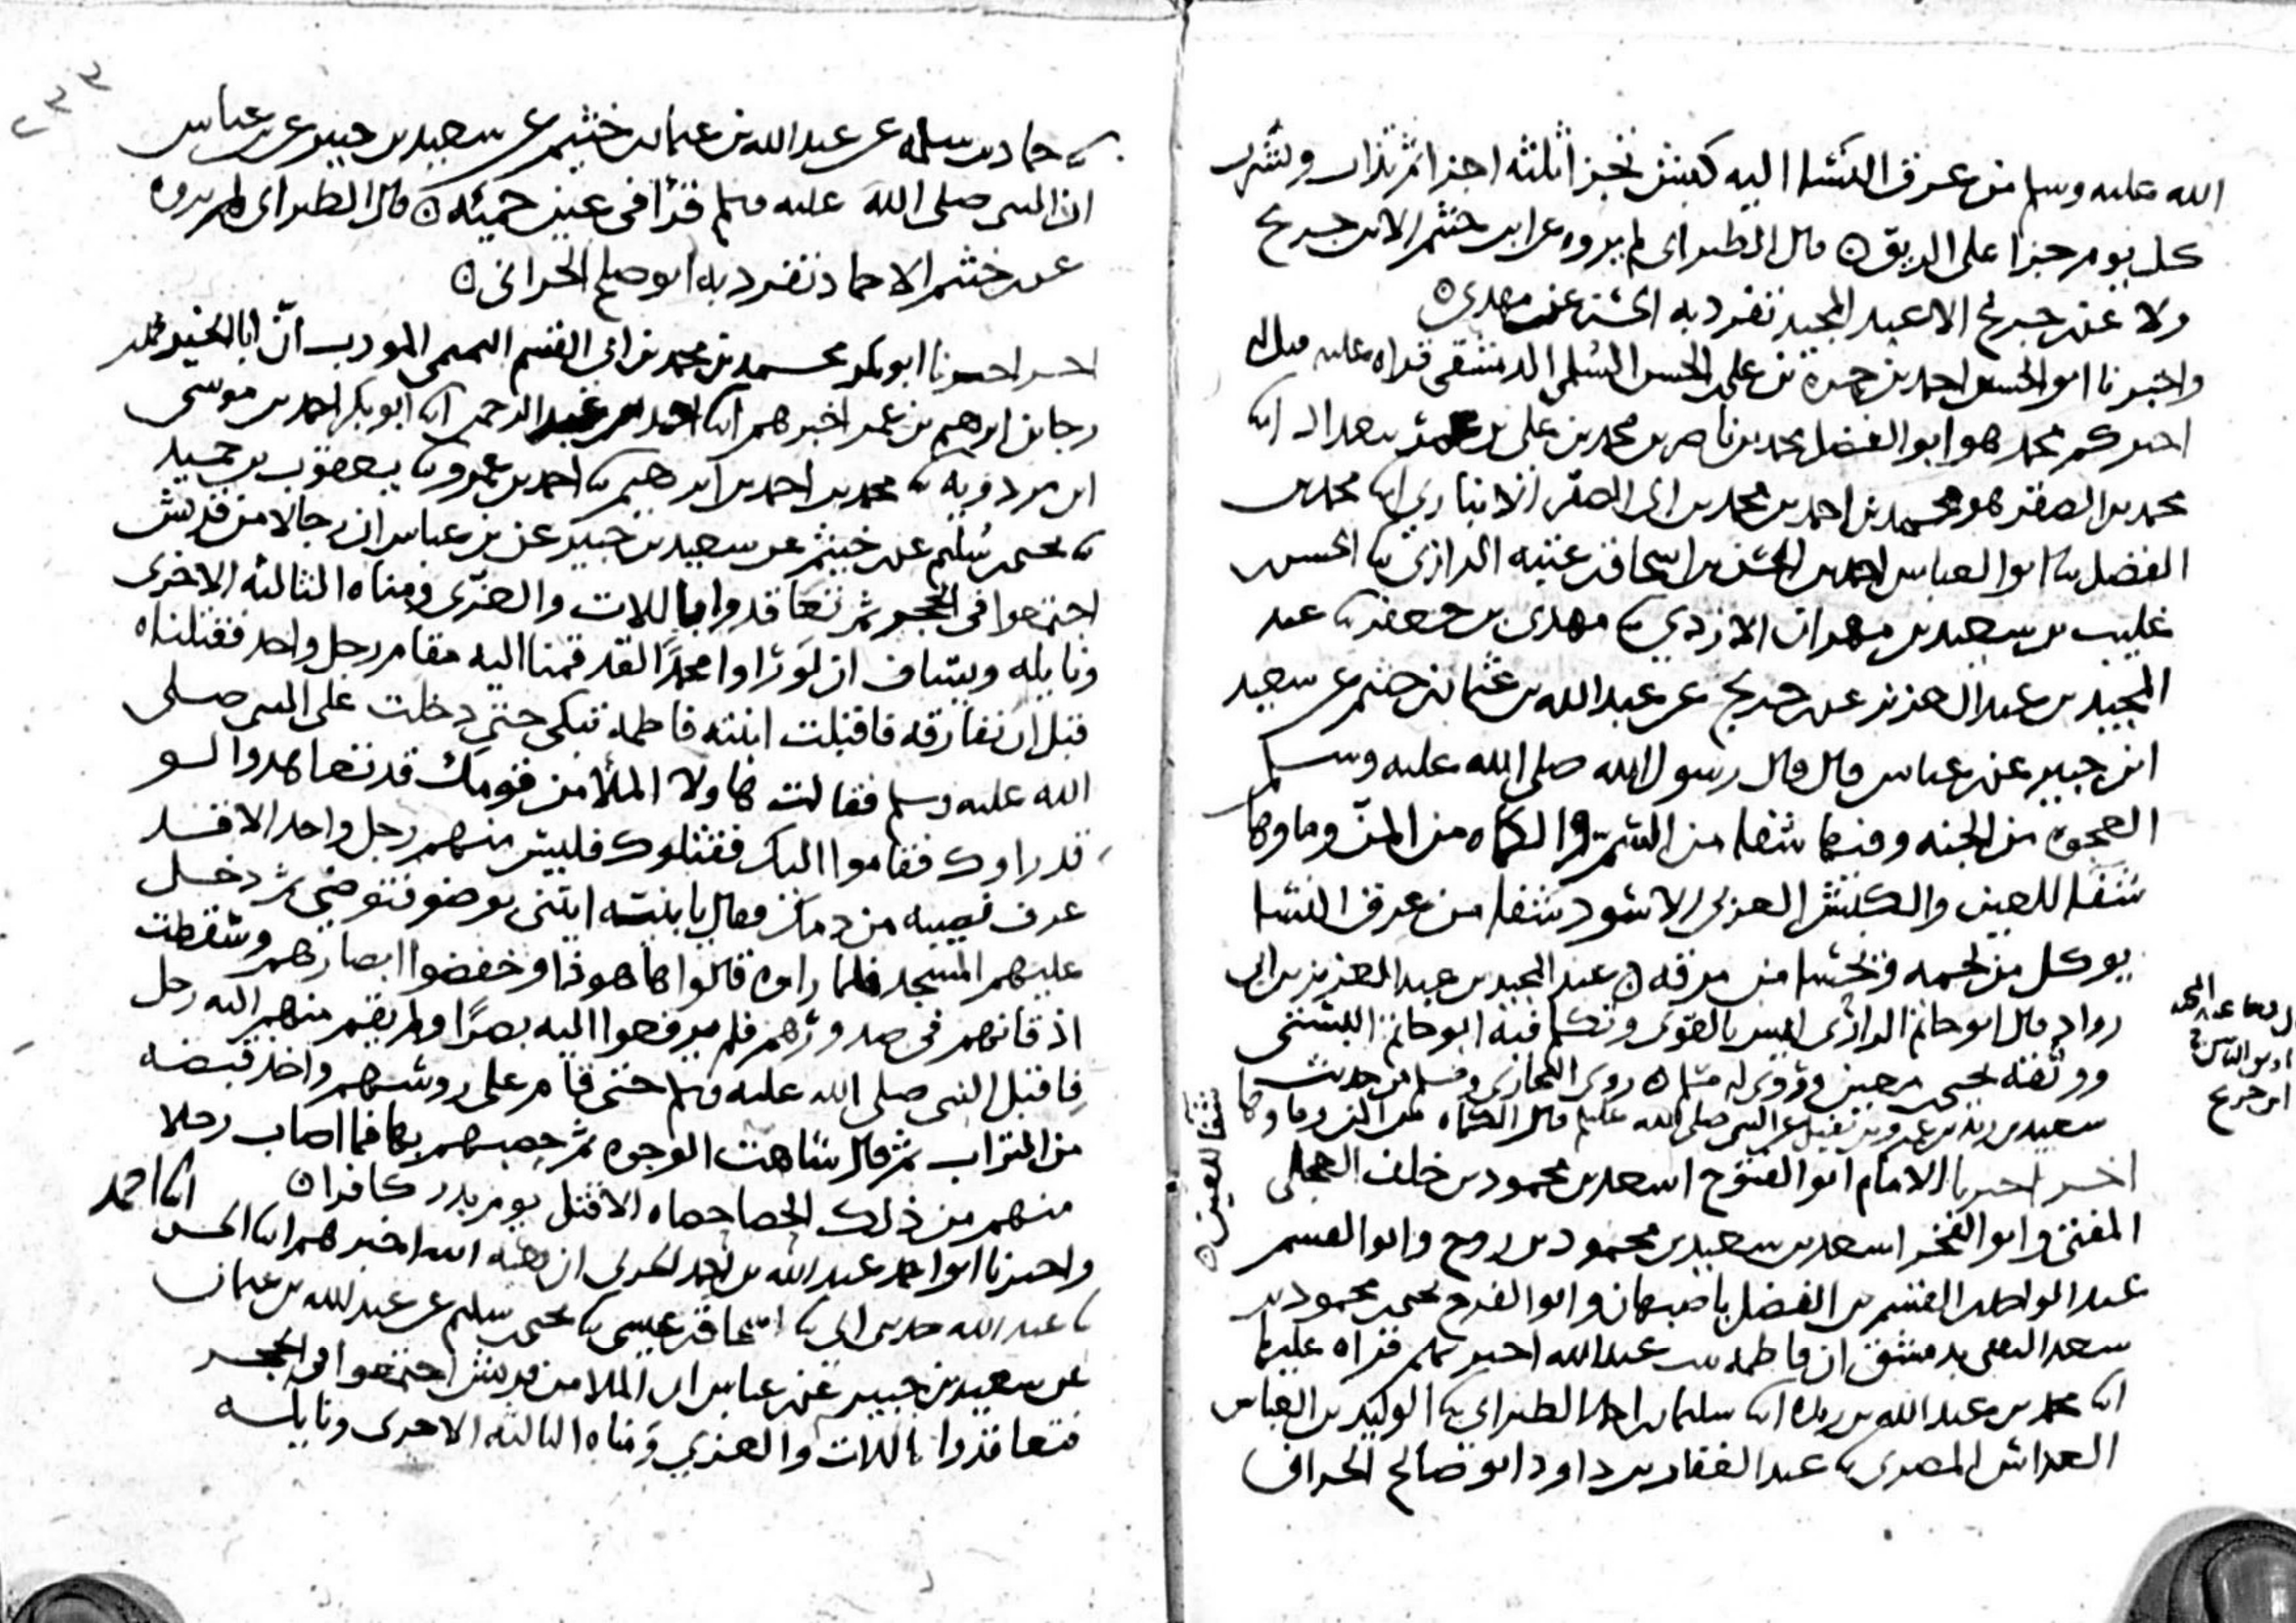 الله عليه وسلم من عرق النسا اليه كبش تجزا ثلثه اجزا ثم يذاب ويشرب
كل يوم جزا على الريق ٥ قال الطبراني لم يروه عن ابن خثيم الا ابن جريج
ولا عن جريج الا عبد المجيد تفرد به مهدي ٥
واخبرنا ابو الحسين احمد بن حمزة بن علي بن الحسن السلمي الدمشقي قراه عليه قيل له
اخبركم محمد هو ابو الفضل محمد بن ناصر بن محمد بن علي بن عمر ببغداد انا
محمد بن الصقر هو محمد بن احمد بن محمد بن ابي الصقر الانباري انا محمد بن
الفضل نا ابو العباس احمد بن الحسن بن اسحاق بن عتبه الرازي نا الحسين
غليب بن سعيد بن مهران الازدي نا مهدي بن جعفر نا عبد
المجيد بن عبد العزيز عن جريج عن عبد الله بن عثمان بن خثيم عن سعيد
ابن جبير عن عباس قال قال رسول الله صلى الله عليه وسلم
العجوه من الجنه وفيها شفا من السم والكماه من المن وماوها
شفا للعين والكبش العربي الاسود شفا من عرق النسا
يوكل من لحمه ويحسا من مرقه ٥ عبد المجيد بن عبد العزيز بن ابي
رواد قال ابو حاتم الرازي ليس بالقوي وتكلم فيه ابو حاتم البستي
ووثقه يحيى معين وروى له مسلم ٥ روى البخاري ومسلم من حديث
سعيد بن زيد بن عمرو بن نفيل عن النبي صلى الله عليه وسلم قال الكماه من المن وماوها
شفا للعين ٥
ابن جريج
اخبرنا الامام ابو الفتوح اسعد بن محمود بن خلف العجلي
المفتي وابو الفخر اسعد بن سعيد بن محمود بن روح وابو القسم
عبد الواحد القسم بن الفضل باصبهان وابو الفرج يحيى محمود بن
سعد الثقفي بدمشق ان فاطمه بنت عبد الله اخبرتهم قراه عليها
انا محمد بن عبد الله بن ريذه انا سليمان احمد الطبراني نا الوليد بن العباس
العداس المصري نا عبد الغفار بن داود ابو صالح الحراني
نا حماد بن سلمه عن عبد الله بن عثمان خثيم عن سعيد بن جبير عن عباس
ان النبي صلى الله عليه وسلم قرا في عين حمئه ٥ قال الطبراني لم يروه
عن خثيم الا حماد تفرد به ابو صلح الحراني ٥
اخبرنا ابو بكر محمد بن محمد بن ابي القسم التميمي المودب ان ابا الخير محمد
رجا بن ابرهيم بن عمر اخبرهم انا احمد بن عبد الرحمن انا ابو بكر احمد بن موسى
ابن مردويه نا محمد بن احمد بن ابرهيم نا احمد بن عمرو نا يعقوب بن حميد
نا يحيى سليم عن خثيم عن سعيد بن جبير عن بن عباس ان رجالا من قريش
اجتمعوا في الحجر ثم تعاقدوا باللات والعزى ومناه الثالثه الاخرى
ونايله ويساف ان لو راوا محمدا لقد قمنا اليه مقام رجل واحد فقتلناه
قبل ان نفارقه فاقبلت ابنته فاطمه تبكي حتى دخلت على النبي صلى
الله عليه وسلم فقالت هاولا الملا من قومك قد تعاهدوا لو
قد راوك فقاموا اليك فقتلوك فليس منهم رجل واحد الا قد
عرف نصيبه من دمك فقال يا بنته ايتني بوضو فتوضى ثم دخل
عليهم المسجد فلما راوه قالوا ها هو ذا وخفضوا ابصارهم وسقطت
اذقانهم في صدورهم فلم يرفعوا اليه بصرا ولم يقم منهم اليه رجل
فاقبل النبي صلى الله عليه وسلم حتى قام على روسهم واخذ قبضه
من التراب ثم قال شاهت الوجوه ثم حصبهم بها فما اصاب رجلا
منهم من ذلك الحصا حصاه الا قتل يوم بدر كافرا ٥
واخبرنا ابو احمد عبد الله بن احمد الحربي ان هبه الله اخبرهم انا الحسن انا احمد
نا عبد الله حدثني ابي نا اسحاق بن عيسى نا يحيى سليم عن عبد الله بن عثمان
عن سعيد بن جبير عن عباس ان الملا من قريش اجتمعوا في الحجر
فتعاقدوا باللات والعزى ومناه الثالثه الاخرى ونايله